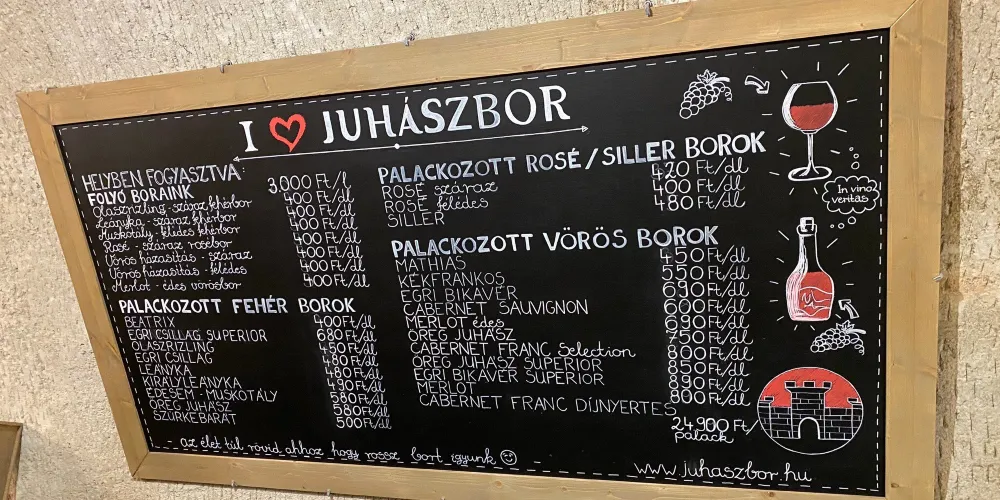 I ♥ JUHÁSZBOR
HELYBEN FOGYASZTVA: 3.000 Ft/l
FOLYÓ BORAINK
Olaszrizling - száraz fehérbor 400 Ft/dl
Leányka - száraz fehérbor 400 Ft/dl
Muskotály - félédes fehérbor 400 Ft/dl
Rosé - száraz rosébor 400 Ft/dl
Vörös házasítás - száraz 400 Ft/dl
Vörös házasítás - félédes 400 Ft/dl
Merlot - édes vörösbor 400 Ft/dl
PALACKOZOTT FEHÉR BOROK
BEATRIX 400 Ft/dl
EGRI CSILLAG SUPERIOR 680 Ft/dl
OLASZRIZLING 450 Ft/dl
EGRI CSILLAG 480 Ft/dl
LEÁNYKA 480 Ft/dl
KIRÁLYLEÁNYKA 490 Ft/dl
ÉDESEM - MUSKOTÁLY 580 Ft/dl
ÖREG JUHÁSZ 580 Ft/dl
SZÜRKEBARÁT 500 Ft/dl
PALACKOZOTT ROSÉ / SILLER BOROK
ROSÉ száraz 420 Ft/dl
ROSÉ félédes 400 Ft/dl
SILLER 480 Ft/dl
PALACKOZOTT VÖRÖS BOROK
MATHIÁS 450 Ft/dl
KÉKFRANKOS 550 Ft/dl
EGRI BIKAVÉR 690 Ft/dl
CABERNET SAUVIGNON 600 Ft/dl
MERLOT édes 690 Ft/dl
ÖREG JUHÁSZ 750 Ft/dl
CABERNET FRANC Selection 800 Ft/dl
ÖREG JUHÁSZ SUPERIOR 850 Ft/dl
EGRI BIKAVÉR SUPERIOR 890 Ft/dl
MERLOT 800 Ft/dl
CABERNET FRANC DÍJNYERTES 24.900 Ft/palack
In vino veritas
- az élet túl rövid ahhoz hogy rossz bort igyunk ☺
www.juhaszbor.hu